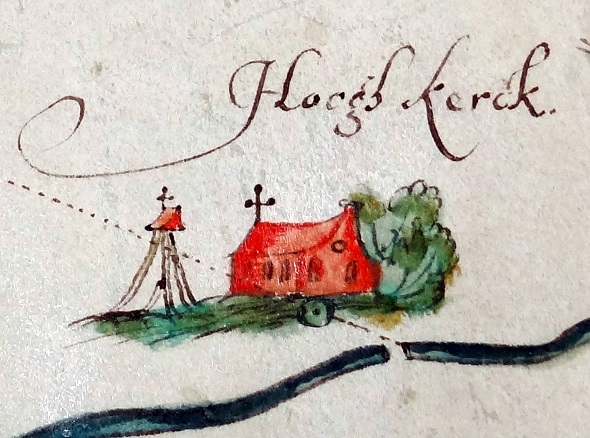 Hoogh kerck.